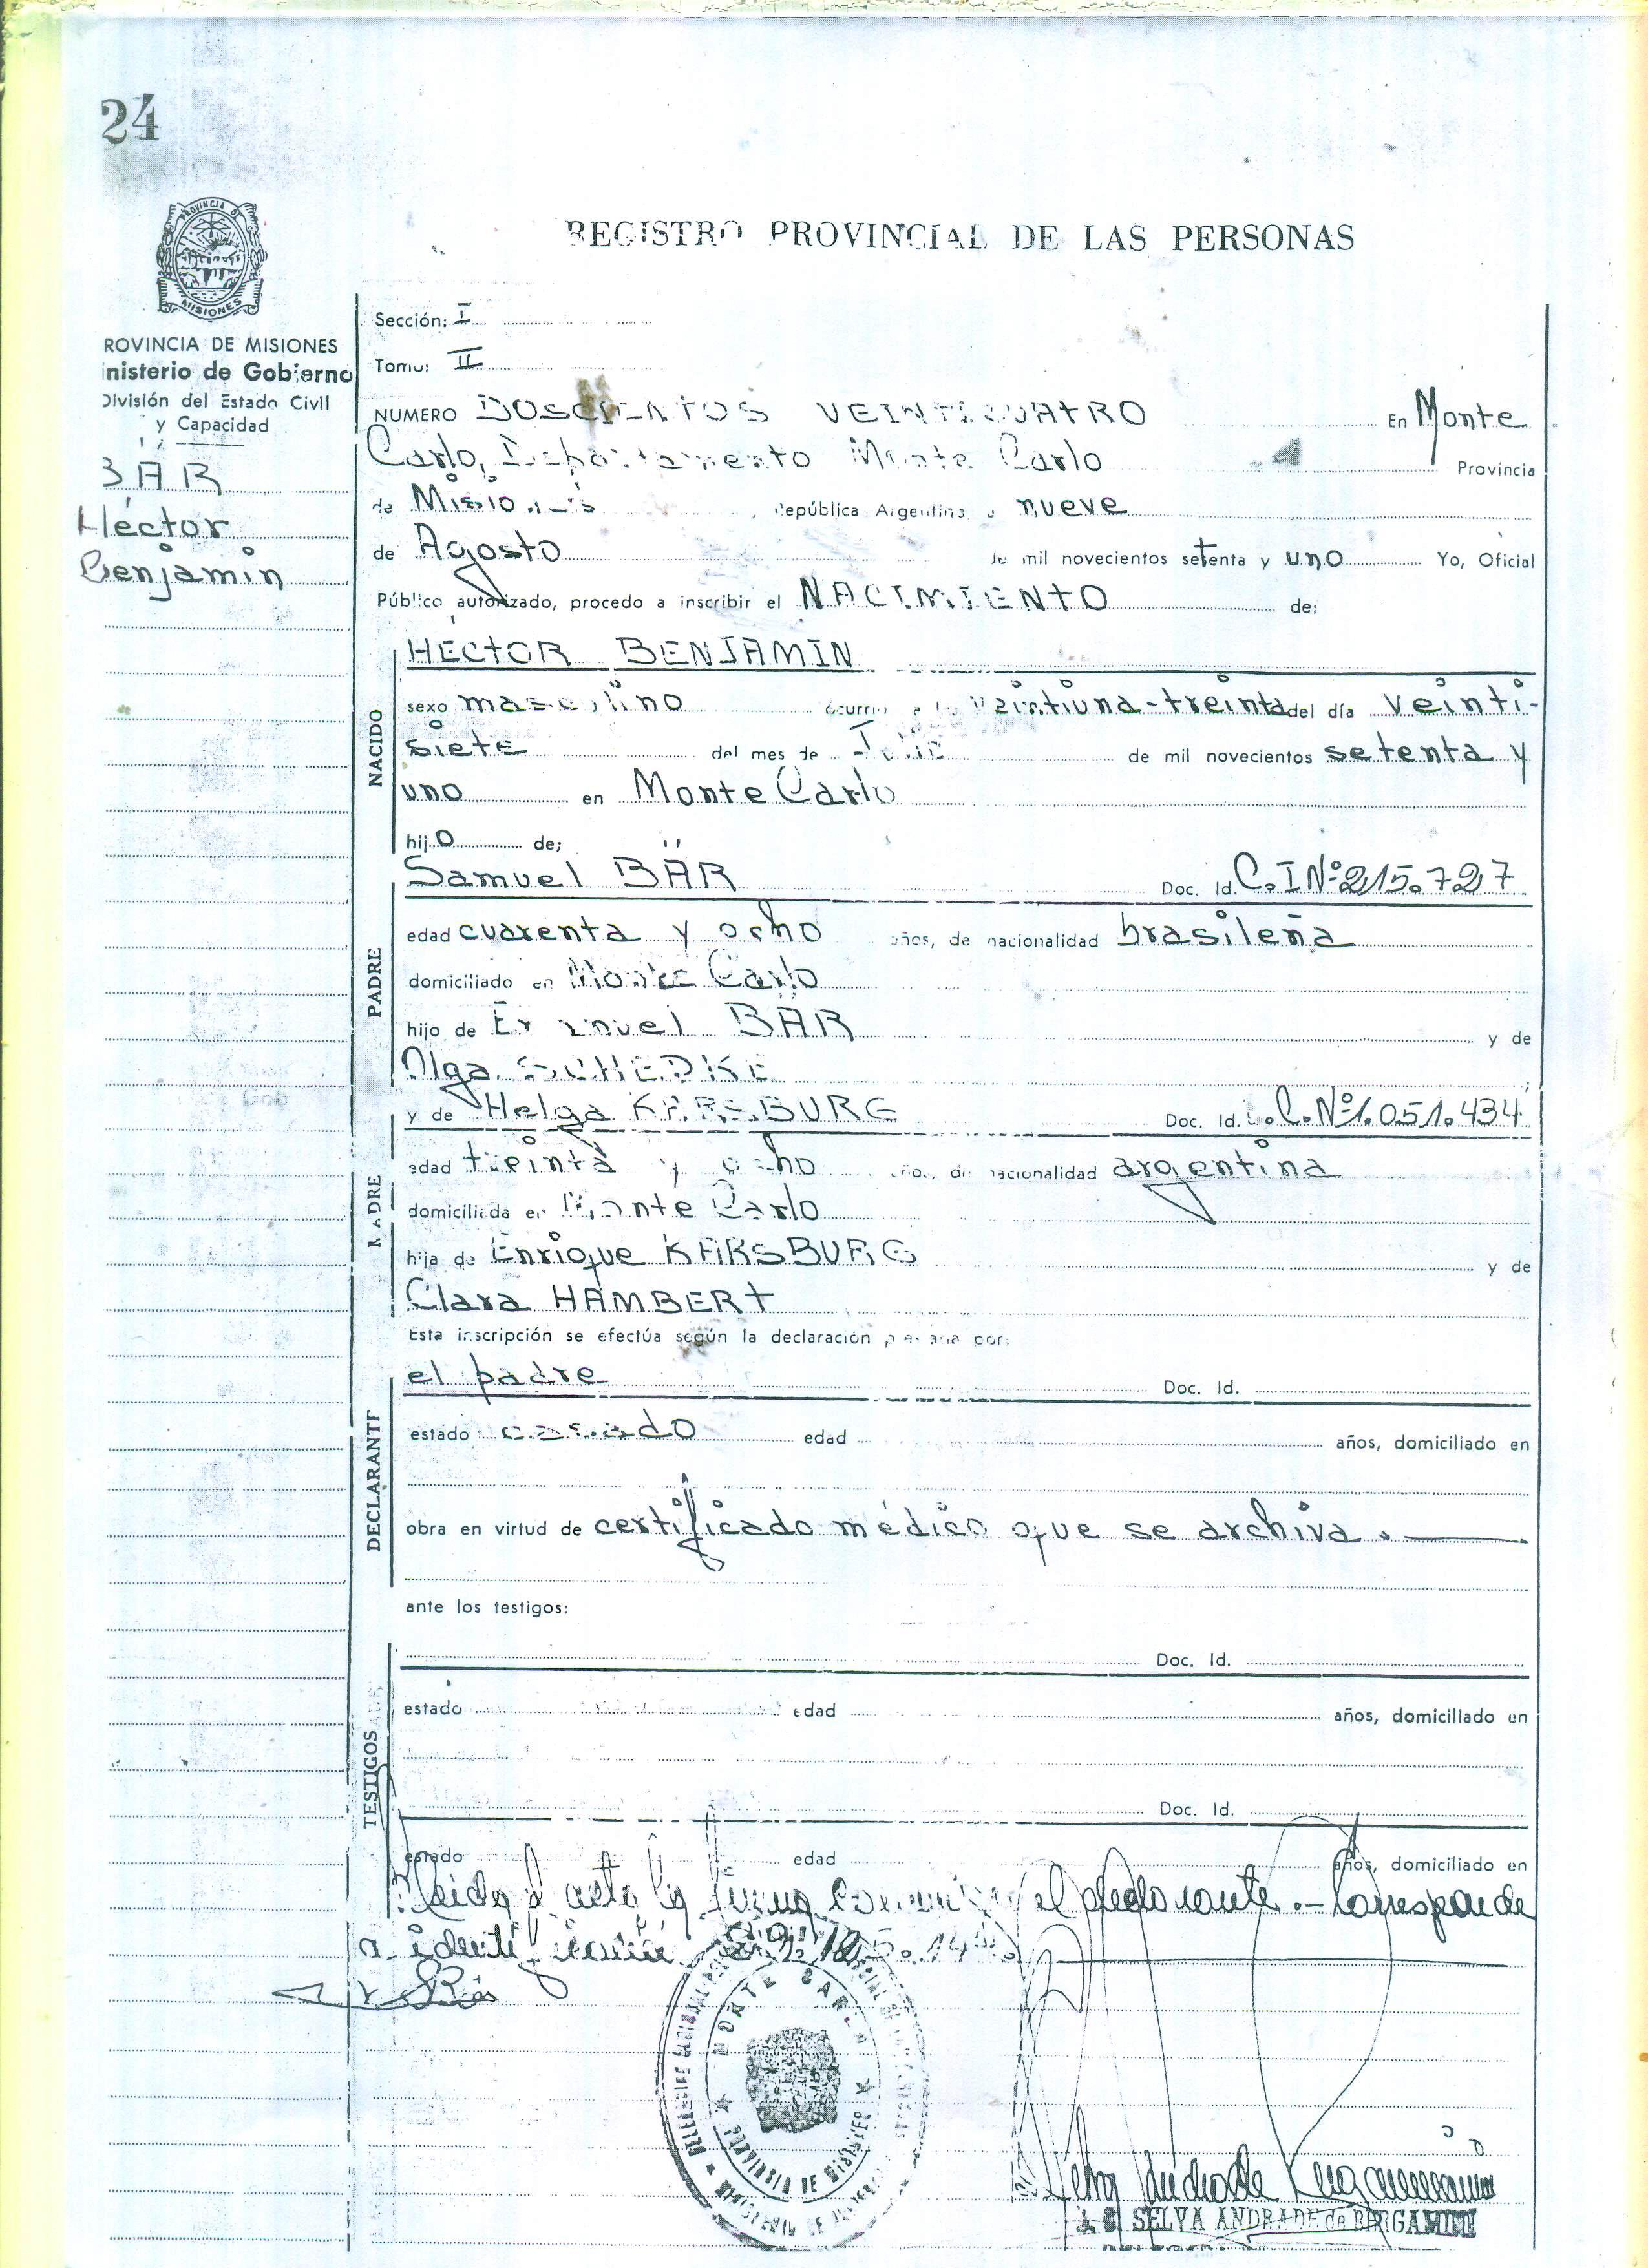 24
REGISTRO PROVINCIAL DE LAS PERSONAS
PROVINCIA DE
MISIONES
ROVINCIA DE MISIONES
inisterio de Gobierno
División del Estado Civil
y Capacidad
BÄR
Héctor
Benjamin
Sección: I
Tomo: II
NUMERO DOSCIENTOS VEINTICUATRO En Monte
Carlo, Departamento Monte Carlo Provincia
de Misiones República Argentina a nueve
de Agosto de mil novecientos setenta y uno Yo, Oficial
Público autorizado, procedo a inscribir el NACIMIENTO de:
NACIDO
HÉCTOR BENJAMIN
sexo masculino ocurrido a las veintiuna-treinta del día veinti-
siete del mes de Julio de mil novecientos setenta y
uno en Monte Carlo
hijo de;
PADRE
Samuel BÄR Doc. Id. C.I Nº 215.727
edad cuarenta y ocho años, de nacionalidad brasileña
domiciliado en Monte Carlo
hijo de Emanuel BÄR y de
Olga SCHEDKE
MADRE
y de Helga KARSBURG Doc. Id. L.C. Nº 1.051.434
edad treinta y ocho años, de nacionalidad argentina
domiciliada en Monte Carlo
hija de Enrique KARSBURG y de
Clara HAMBERT
Esta inscripción se efectúa según la declaración prestada por:
DECLARANTE
el padre Doc. Id.
estado casado edad años, domiciliado en
obra en virtud de certificado médico que se archiva.
ante los testigos:
TESTIGOS
Doc. Id.
estado edad años, domiciliado en
Doc. Id.
estado edad años, domiciliado en
Leida el acta la firma conmigo el declarante.- Corresponde
MONTE CARLO
PROVINCIA DE MISIONES
SELVA ANDRADE de BERGAMINI